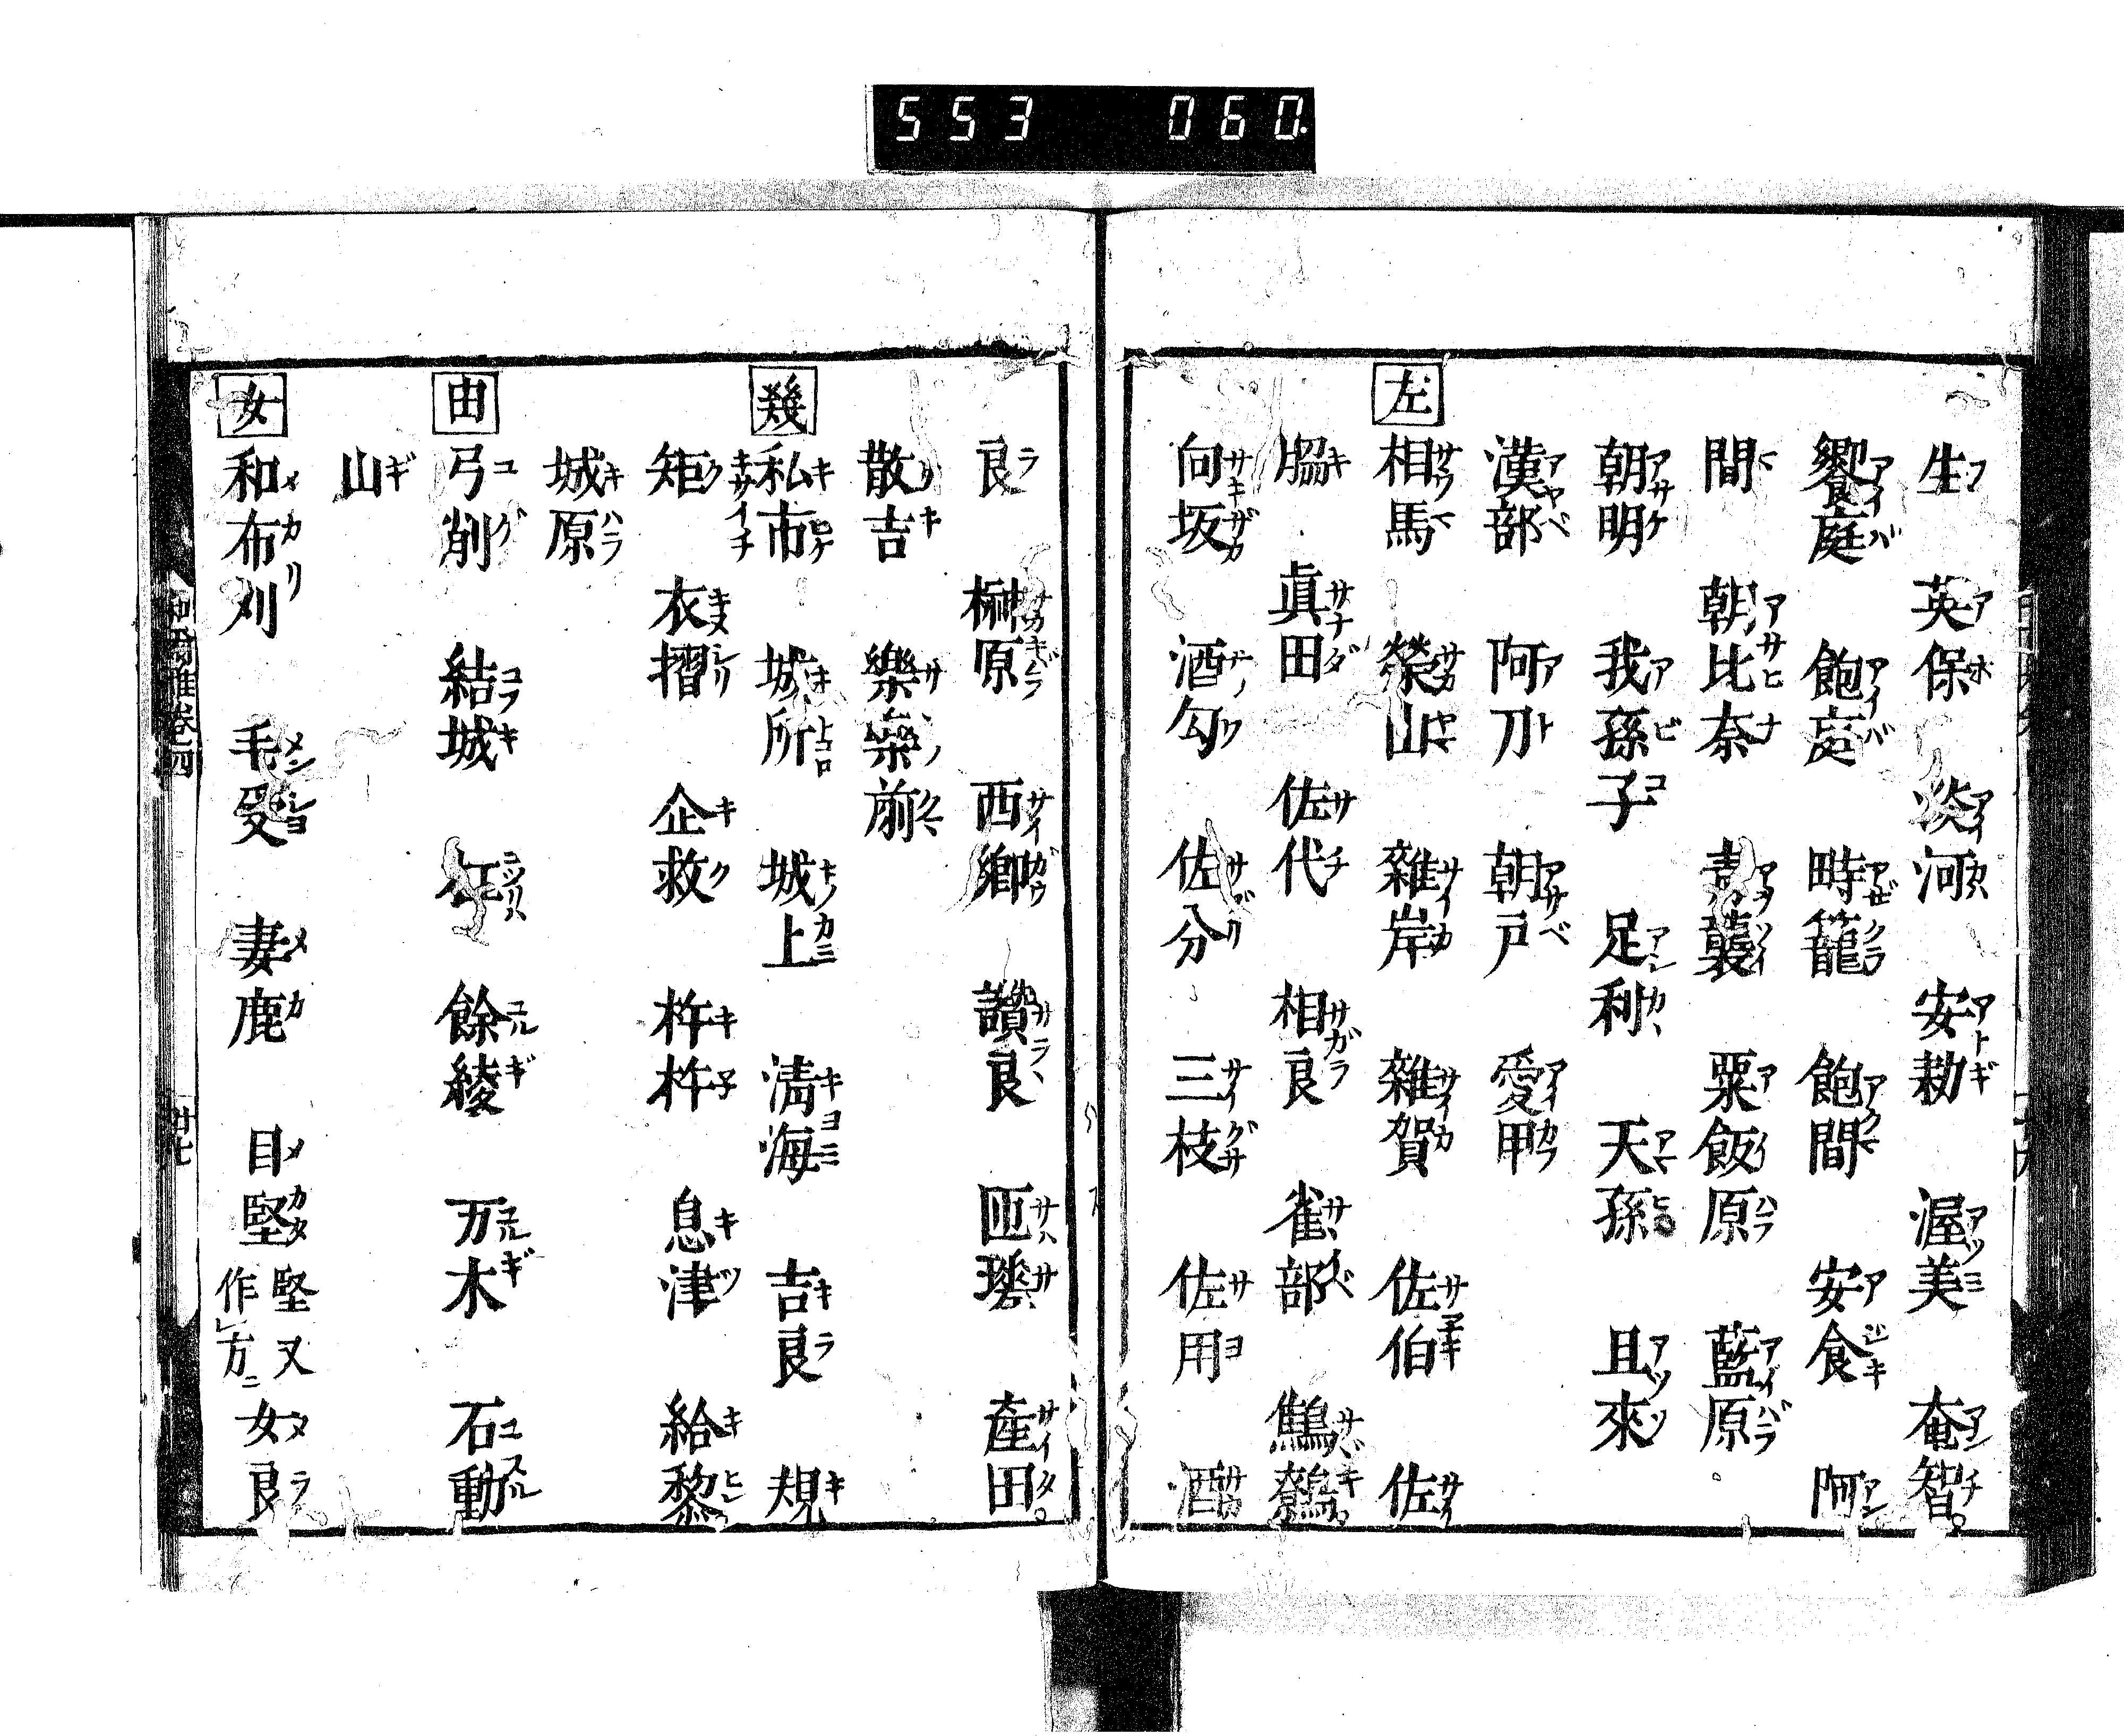 553 060.
生フ 英ア保ホ 淡アイ河カハ 安アト勅ギ 渥アツ美ミ 奄アン智チ。
饗アイ庭バ 飽アイ庭バ 畤アゼ籠クラ 飽アク間マ 安ア食ジキ 阿アン
間マ 朝アサ比ヒ奈ナ 襲ソイ 粟アハ飯イ原ハラ 藍アイ原バラ
朝アサ明ケ 我ア孫ビ子コ 足アシ利カヽ 天アマ孫ヒコ 且アツ來ソ
漢アヤ部ベ 阿ア刀ト 朝アサ戸ベ 愛アイ甲カフ
左 相サウ馬マ 榮サカ山ヤマ 雜サイ岸カ 雜サイ賀カ 佐サ伯エキ 佐サイ
脇キ 眞サナ田ダ 佐サ代テ 相サガ良ラ 雀サヽイ部ベ 鷦サヽ鷯キ。
向サキ坂ザカ 酒サカ勾ワ 佐サ分ブリ 三サイ枝グサ 佐サ用ヨ 酒サカ
良ラ 榊サカキ原バラ 西サイ郷ガウ 讃サラ良ヽ 匝サハ瑳サ 産サイ田タ。
散サツ吉キ 樂サ樂ヽノ前クマ
幾 私キ市サイチ 城キ所トコロ 城キノ上カミ 淸キヨ海ミ 吉キ良ラ 規キ
矩ク 衣キヌ摺スリ 企キ救ク 杵キ杵ネ 息キ津ツ 給キ黎ヒレ
城キ原ハラ
由 弓ユ削ゲ 結ユフ城キ 餘ユル綾ギ 万ユル木ギ 石ユス動ルキ
山ギ
女 和メ布カ刈リ 毛メン受ジヨ 妻メ鹿カ 目メ堅カタ 堅又作方ニ 女メ良ラ
卷四 廿七